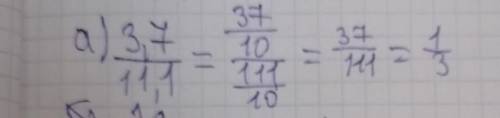 а) 3,7/11,1 = 37/10 / 111/10 = 37/111 = 1/3